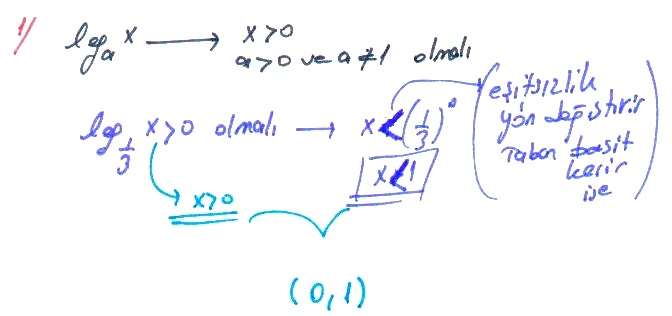 1) logₐ x ⟶ x>0
a>0 ve a≠1 olmalı
log_{1/3} x>0 olmalı ⟶ x<(1/3)⁰
x<1
(eşitsizlik
yön değiştirir
Taban basit
kesir
ise)
x>0
(0,1)